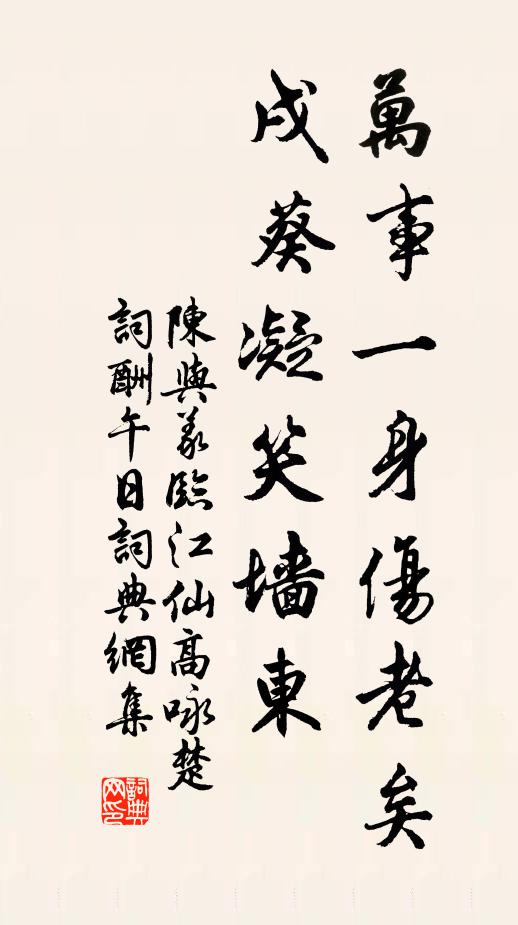 萬事一身傷老矣
戌葵凝笑墙東
陳與義臨江仙高咏楚
詞酬午日詞典網集
詞典网印